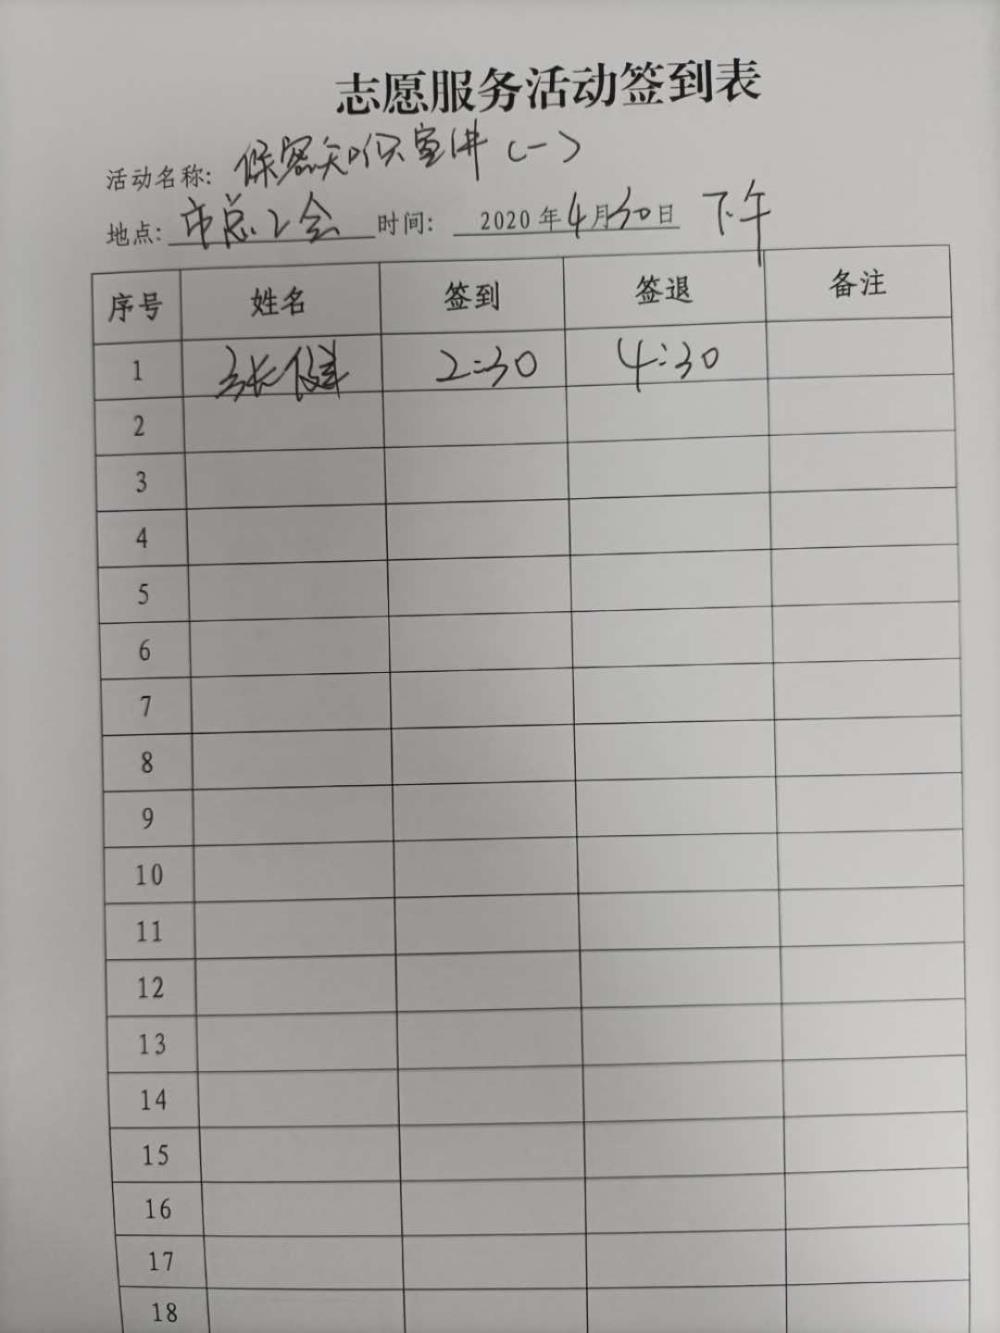 志愿服务活动签到表
活动名称: 保密知识宣讲(一)
地点: 市总工会 时间: 2020年4月30日 下午
序号 姓名 签到 签退 备注
1 张健 2:30 4:30
2
3
4
5
6
7
8
9
10
11
12
13
14
15
16
17
18